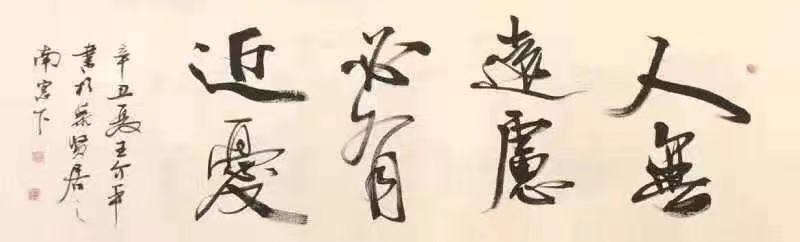 人無
遠慮
必有
近憂
辛丑夏王介平
書於崇賢居之
南窗下